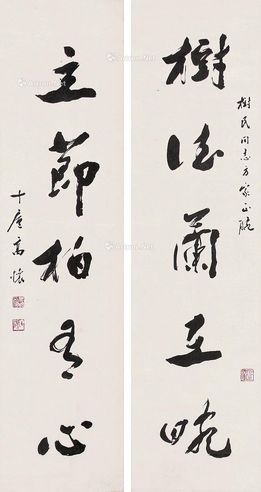 樹民同志方家正腕
樹德蘭在畹
立節柏有心
十廬高懷